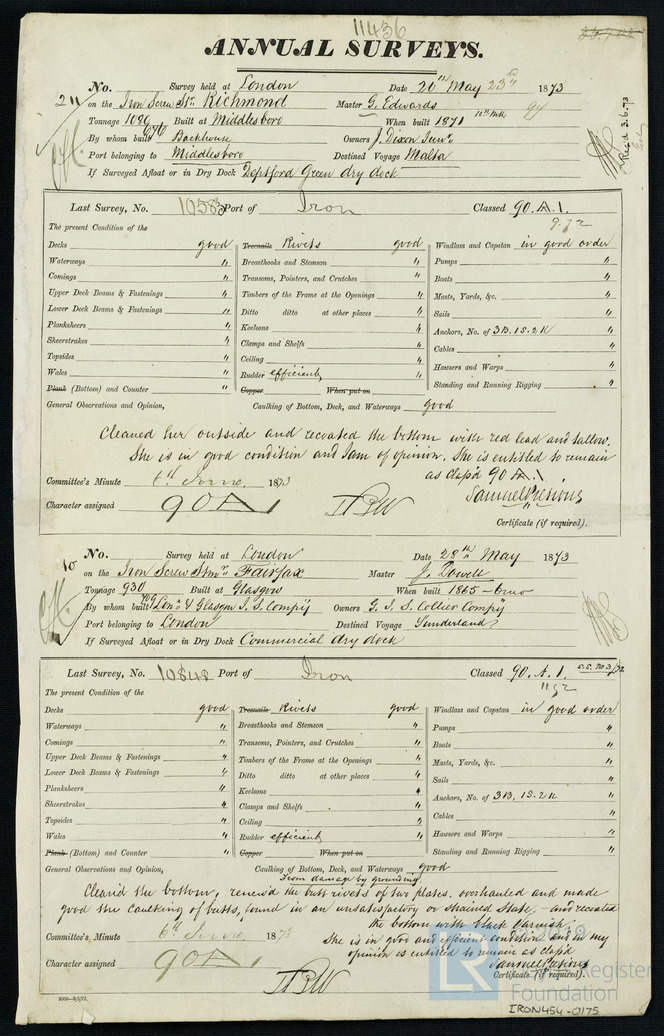 11436
ANNUAL SURVEYS.
No. Survey held at London Date 20th May 23rd 1873
on the Iron Screw Str Richmond Master G. Edwards
Tonnage 1080 Built at Middlesboro When built 1871 10th Mo
676
By whom built Backhouse Owners J. Dixon Junr
Port belonging to Middlesboro Destined Voyage Malta
If Surveyed Afloat or in Dry Dock Deptford Green dry dock
Recd 3.6.73
Last Survey, No. 10583 Port of Iron Classed 90.A.1.
9.72
The present Condition of the
Decks good Treenails Rivets good Windlass and Capstan in good order
Waterways " Breasthooks and Stemson " Pumps "
Comings " Transoms, Pointers, and Crutches " Boats "
Upper Deck Beams & Fastenings " Timbers of the Frame at the Openings " Masts, Yards, &c. "
Lower Deck Beams & Fastenings " Ditto ditto at other places " Sails "
Planksheers " Keelsons " Anchors, No. of 3B. 1S. 2K "
Sheerstrakes " Clamps and Shelfs " Cables "
Topsides " Ceiling " Hawsers and Warps "
Wales " Rudder efficient Standing and Running Rigging "
Plank (Bottom) and Counter " Copper When put on
General Observations and Opinion, Caulking of Bottom, Deck, and Waterways good
Cleaned her outside and recoated the bottom with red lead and tallow.
She is in good condition and I am of opinion. She is entitled to remain
as class'd 90 A.1
Committee's Minute 6th June 1873
Character assigned 90 A 1
Samuel Pretious
Certificate (if required).
No. Survey held at London Date 28th May 1873
on the Iron Screw Stmr Fairfax Master J. Dowell
Tonnage 930 Built at Glasgow When built 1865
By whom built Lonn & Glasgow I. S. Compy Owners G. I. S. Collier Compy
Port belonging to London Destined Voyage Sunderland
If Surveyed Afloat or in Dry Dock Commercial dry dock
Last Survey, No. 10848 Port of Iron Classed 90. A. 1.
11.72
The present Condition of the
Decks good Treenails Rivets good Windlass and Capstan in good order
Waterways " Breasthooks and Stemson " Pumps "
Comings " Transoms, Pointers, and Crutches " Boats "
Upper Deck Beams & Fastenings " Timbers of the Frame at the Openings " Masts, Yards, &c. "
Lower Deck Beams & Fastenings " Ditto ditto at other places " Sails "
Planksheers " Keelsons " Anchors, No. of 3B. 1S. 2K "
Sheerstrakes " Clamps and Shelfs " Cables "
Topsides " Ceiling " Hawsers and Warps "
Wales " Rudder efficient Standing and Running Rigging "
Plank (Bottom) and Counter " Copper When put on
General Observations and Opinion, Caulking of Bottom, Deck, and Waterways good
from damage by grounding
Clean'd the bottom, renew'd the butt rivets of two plates. overhauled and made
good the caulking of butts, found in an unsatisfactory or strained state, - and recoated
the bottom with black varnish.
She is in good and efficient condition and in my
opinion is entitled to remain as class'd
Committee's Minute 6th June 1873
Character assigned 90 A 1
Samuel Pretious
Certificate (if required).
Register
Foundation
IRON454-0175